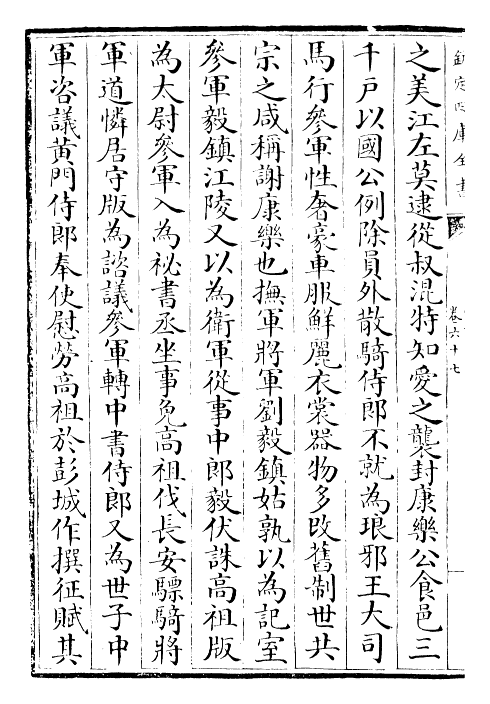 欽定四庫全書
卷六十七
之美江左莫逮從叔混特知愛之襲封康樂公食邑三
千戸以國公例除員外散騎侍郎不就為琅邪王大司
馬行參軍性奢豪車服鮮麗衣裳器物多改舊制世共
宗之咸稱謝康樂也撫軍將軍劉毅鎮姑孰以為記室
參軍毅鎮江陵又以為衛軍從事中郎毅伏誅高祖版
為太尉參軍入為祕書丞坐事免高祖伐長安驃騎將
軍道憐居守版為諮議參軍轉中書侍郎又為世子中
軍咨議黃門侍郎奉使慰勞高祖於彭城作撰征賦其